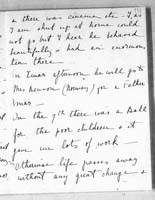 & there was cinema etc. I as
I am shut up at home could
not go but I hear he behaved
beautifully & had an enormous
tea there.
In Xmas afternoon he will go to
Mrs (Nomes) for a Father
Xmas.
On the 9th there was a ball
for the poor children & it
gave me lots of work —
Otherwise life passes away
without any great change &